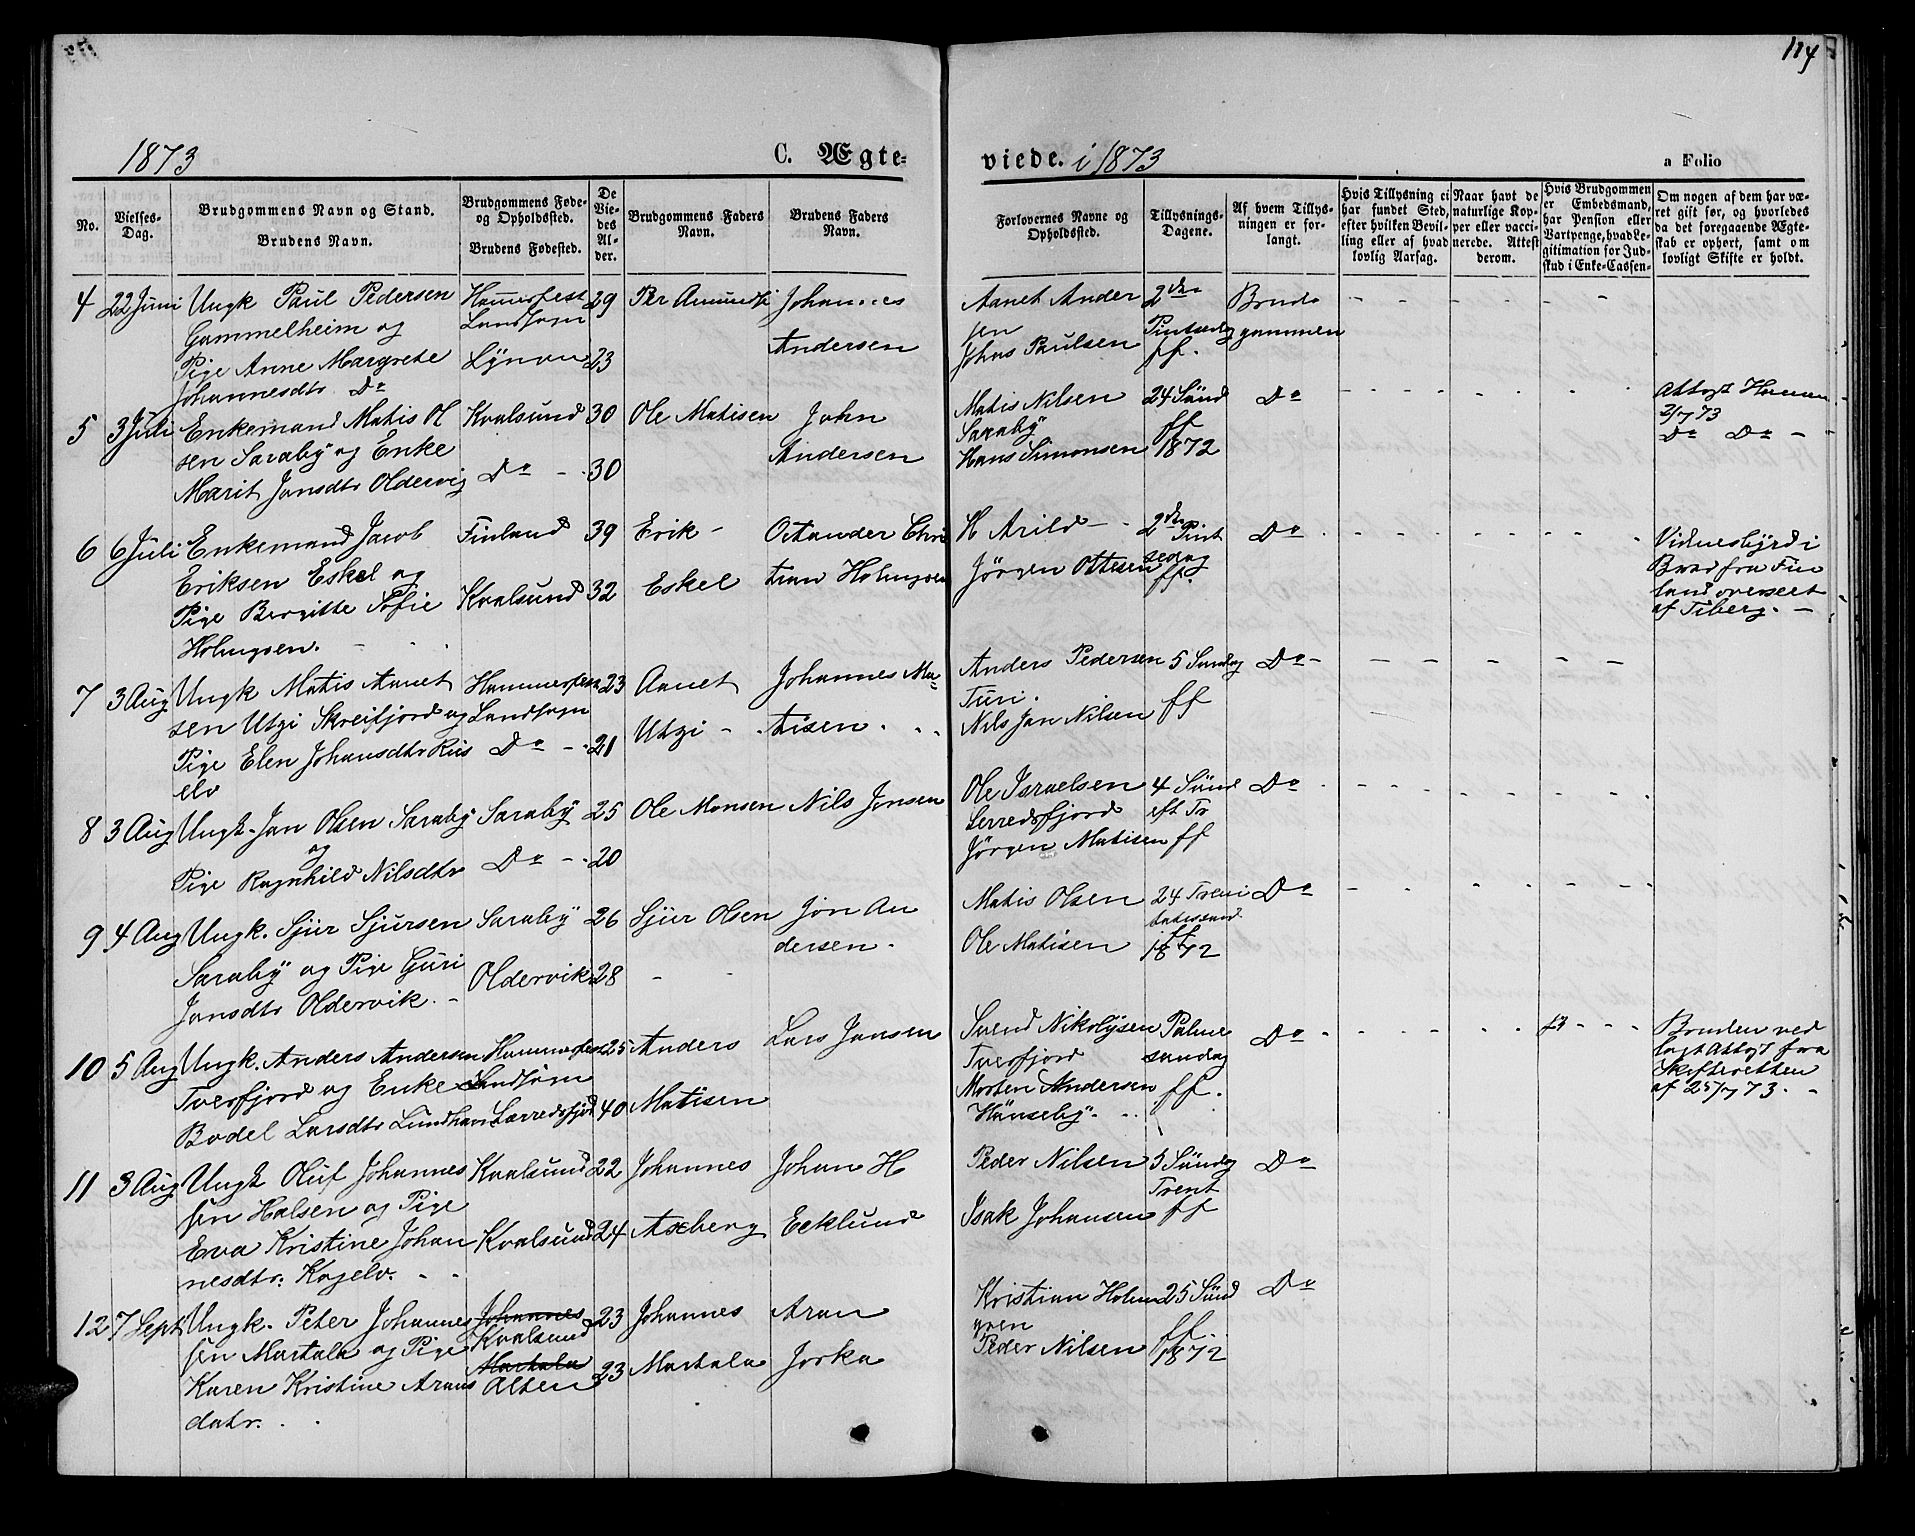 114
1873
C. Ægte-
viede. i 1873
a Folio
No.
Vielses-
Dag.
Brudgommens Navn og Stand.
Brudens Navn.
Brudgommens Føde-
og Opholdssted.
Brudens Fødested.
De
Vie-
des
Al-
der.
Brudgommens Faders
Navn.
Brudens Faders
Navn.
Forlovernes Navne og
Opholdssted.
Tillysnings-
Dagene.
Af hvem Tillys-
ningen er for-
langt.
Hvis Tillysning ei
har fundet Sted,
efter hvilken Bevil-
ling eller af hvad
lovlig Aarsag.
Naar havt de
naturlige Kop-
per eller vacci-
nerede. Attest
derom.
Hvis Brudgommen
er Embedsmand,
har Pension eller
Vartpenge, hvad Le-
gitimation for Ind-
skud i Enke-Cassen
Om nogen af dem har væ-
ret gift før, og hvorledes
da det foregaaende Ægte-
skab er ophørt, samt om
lovligt Skifte er holdt.
4 22 Juni
Ungk Paul Pedersen
Gammelheim og
Pige Anne Margrete
Johannesdtr Do
Hammerfest
Landsogn
Lyngen
29
23
Per Amundsn
Johannes
Andersen
Aanet Ander
sen
Johns Paulsen
2den
Pintsedag
ff.
Brud
gommen
5 3 Juli
Enkemand Matis Ol
sen Saraby og Enke
Marit Jonsdtr Oldervig
Kvalsund
Do
30
30
Ole Matisen
John
Andersen
Matis Nilsen
Saraby
Hans Simonsen
24 Sünd
ff
1872
Do
Attest Hammr
2/7 73
Do Do -
6 6 Juli
Enkemand Jacob
Eriksen Eskel og
Pige Bergitte Sofie
Holmgren.
Finland
Kvalsund
39
32
Erik -
Eskel
Ostander Chri
tian Holmgren
H Arild
Jørgen Ottesen
2den Pint
sedag
ff.
Do
Vidnesbyrd i
Brev fra Fin
land oversat
af Tiberg. -
7 3 Aug
Ungk Matis Aanet
sen Utzi Skreifjord og
Pige Elen Johansdtr Ris
elv
Hammerfest
Landsogn
Do
23
21
Aanet
Utzi -
Johannes Ma-
tisen
Anders Pedersen
Turi.
Nils Jan Nilsen
5 Sundag
ff
Do
8 3 Aug
Ungk. Jan Olsen Saraby
og
Pige Ragnhild Nilsdtr
Saraby
Do
25
20
Ole Monsen
Nils Jonsen
Ole Israelsen
Lerredsfjord
Jørgen Matisen
4 Sünd
eft Tr
ff
Do
9 4 Aug
Ungk. Sjur Sjursen
Saraby og Pige Guri
Jonsdtr Oldervik. -
Saraby
Oldervik
26
28
Sjur Olsen
Jon An
dersen.
Matis Olsen
Ole Matisen
24 Treni
tatissund
ff
1872
Do
10 5 Aug
Ungk. Anders Andersen
Tverfjord og Enke
Bodel Larsdtr Lundhavn
Hammerfest
Landsogn
Lærredsfjord
25
40
Anders
Matisen
Lars Jonsen
Svend Nikolysen
Tverfjord
Morten Andersen
Hönseby.
Palme
søndag
ff.
Do
Bruden ved
lagt Attest fra
Skifteretten
af 25/7 73. -
11 3 Aug
Ungk Oluf Johannes
sen Halsen og Pige
Eva Kristine Johan
nesdtr. Kogelv.
Kvalsund
Kvalsund
22
24
Johannes
Axberg
Johan H
Ecklund
Peder Nilsen
Isak Johansen
3 Sündag
Trent
ff
Do
12 7 Sept
Ungk. Peter Johannes
sen Martala og Pige
Karen Kristine Arans
datr.
Johannes
Kvalsund
Martala
Alten
23
23
Johannes
Martala
Aran
Jorka
Kristian Holm
gren
Peder Nilsen
25 Sünd
ff.
1872
Do